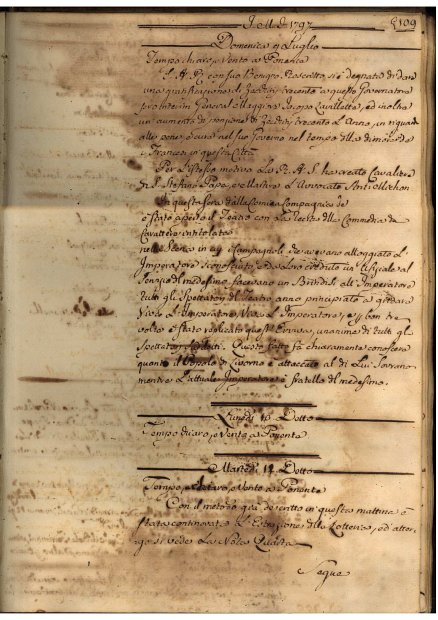 1797 109
Domenica 9 Luglio
Tempo chiaro, e Vento a Ponente
S. A. R. con suo Benigno Rescritto, si è degnata di dare
una gratificazione di Zecchini trecento a questo Governatore
pro Interim General Maggiore Jacopo Lavillette, ed inoltre
un aumento di Zecchini trecento l'Anno, in riguardo
alle pene nel suo Governo nel tempo della dimora de
Francesi in questa Città
Per l'istesso motivo La R. A. S. ha creato Cavaliere
di S. Stefano Papa, e Martire l'Avvocato Ant. Michon
In questa sera dalla Comica Compagnia
è stato aperto il Teatro con la recita della Commedia da
Carattere intitolata
nella Scena in cui i Campagnoli che avevano alloggiato l'
Imperatore sconosciuto, e da loro creduto un Ufiziale al
medesimo, facevano un Brindisi all'Imperatore
tutti gli Spettatori del Teatro anno principiato a gridare
Viva l'Imperatore, Viva l'Imperatore, e per ben tre
volte è stato replicato quest'Evviva, unanime di tutti gli
Spettatori. Questo fatto fà chiaramente conoscere
quanto il Popolo di Livorno è attaccato al di Lui Sovrano
mentre l'attuale Imperatore è fratello del medesimo.
Lunedì 10 Detto
Tempo chiaro, e Vento a Ponente
Martedì 11 Detto
Tempo, e Vento a Ponente
Con il metodo già descritto in questa mattina è
stata continovata l'Estrazione della Lotteria, ed a
si vede La Nota
Segue